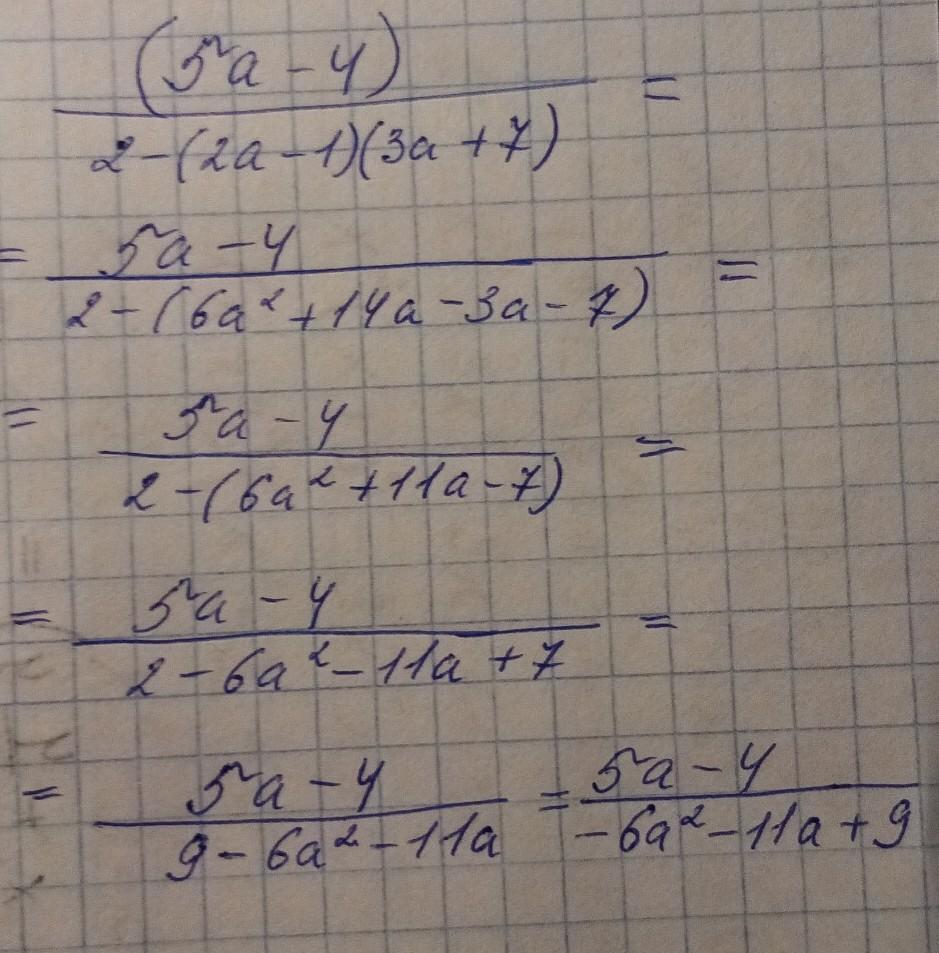 (5a - 4) =
2 - (2a - 1)(3a + 7)
= 5a - 4 =
2 - (6a² + 14a - 3a - 7)
= 5a - 4 =
2 - (6a² + 11a - 7)
= 5a - 4 =
2 - 6a² - 11a + 7
= 5a - 4 = 5a - 4
9 - 6a² - 11a -6a² - 11a + 9